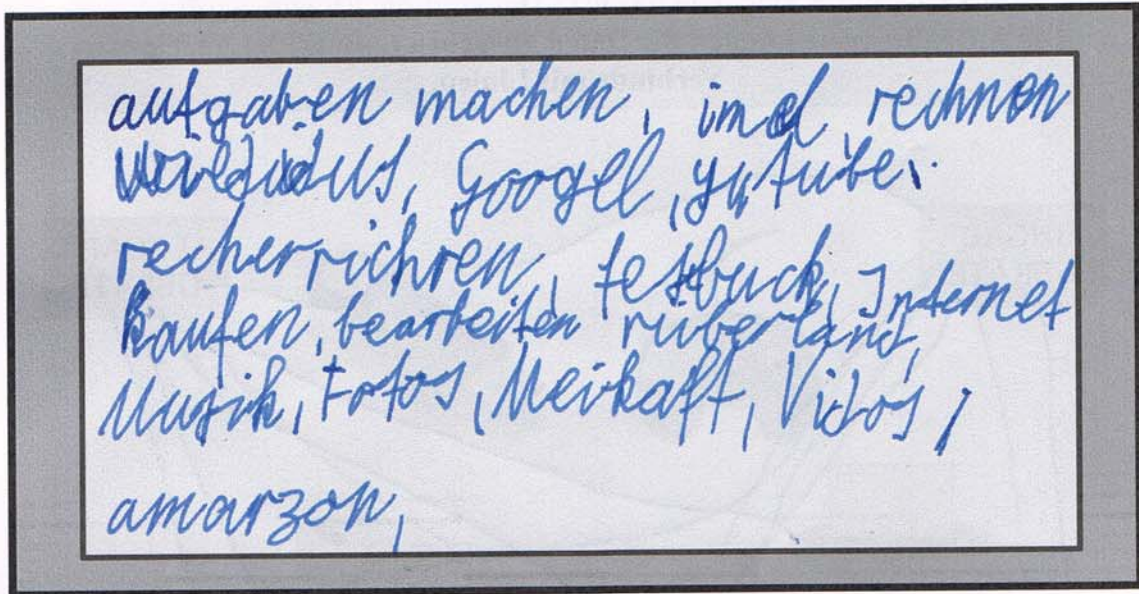 aufgaben machen, imel, rechnen
Googel, yutube,
recherrichren, fesbuck, Internet
kaufen, bearbeiten rüberland,
Musik, Fotos, Meikaft, Vidos,
amarzon,